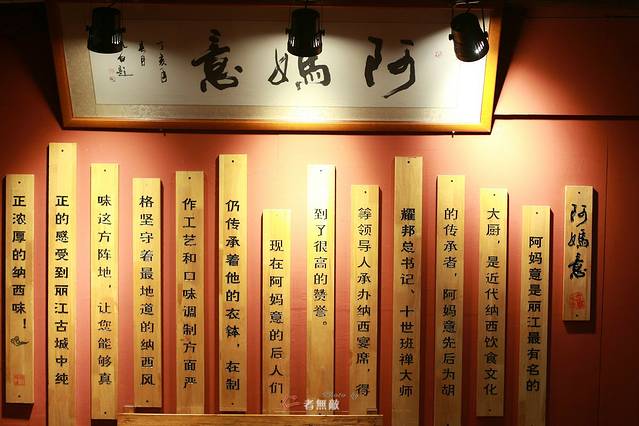 阿媽意
丁亥年
阿媽意
阿妈意是丽江最有名的
大厨，是近代纳西饮食文化
的传承者，阿妈意先后为胡
耀邦总书记、十世班禅大师
等领导人承办纳西宴席，得
到了很高的赞誉。
现在阿妈意的后人们
仍传承着他的衣钵，在制
作工艺和口味调制方面严
格坚守着最地道的纳西风
味这方阵地，让您能够真
正的感受到丽江古城中纯
正浓厚的纳西味！
Photo
一者無敵